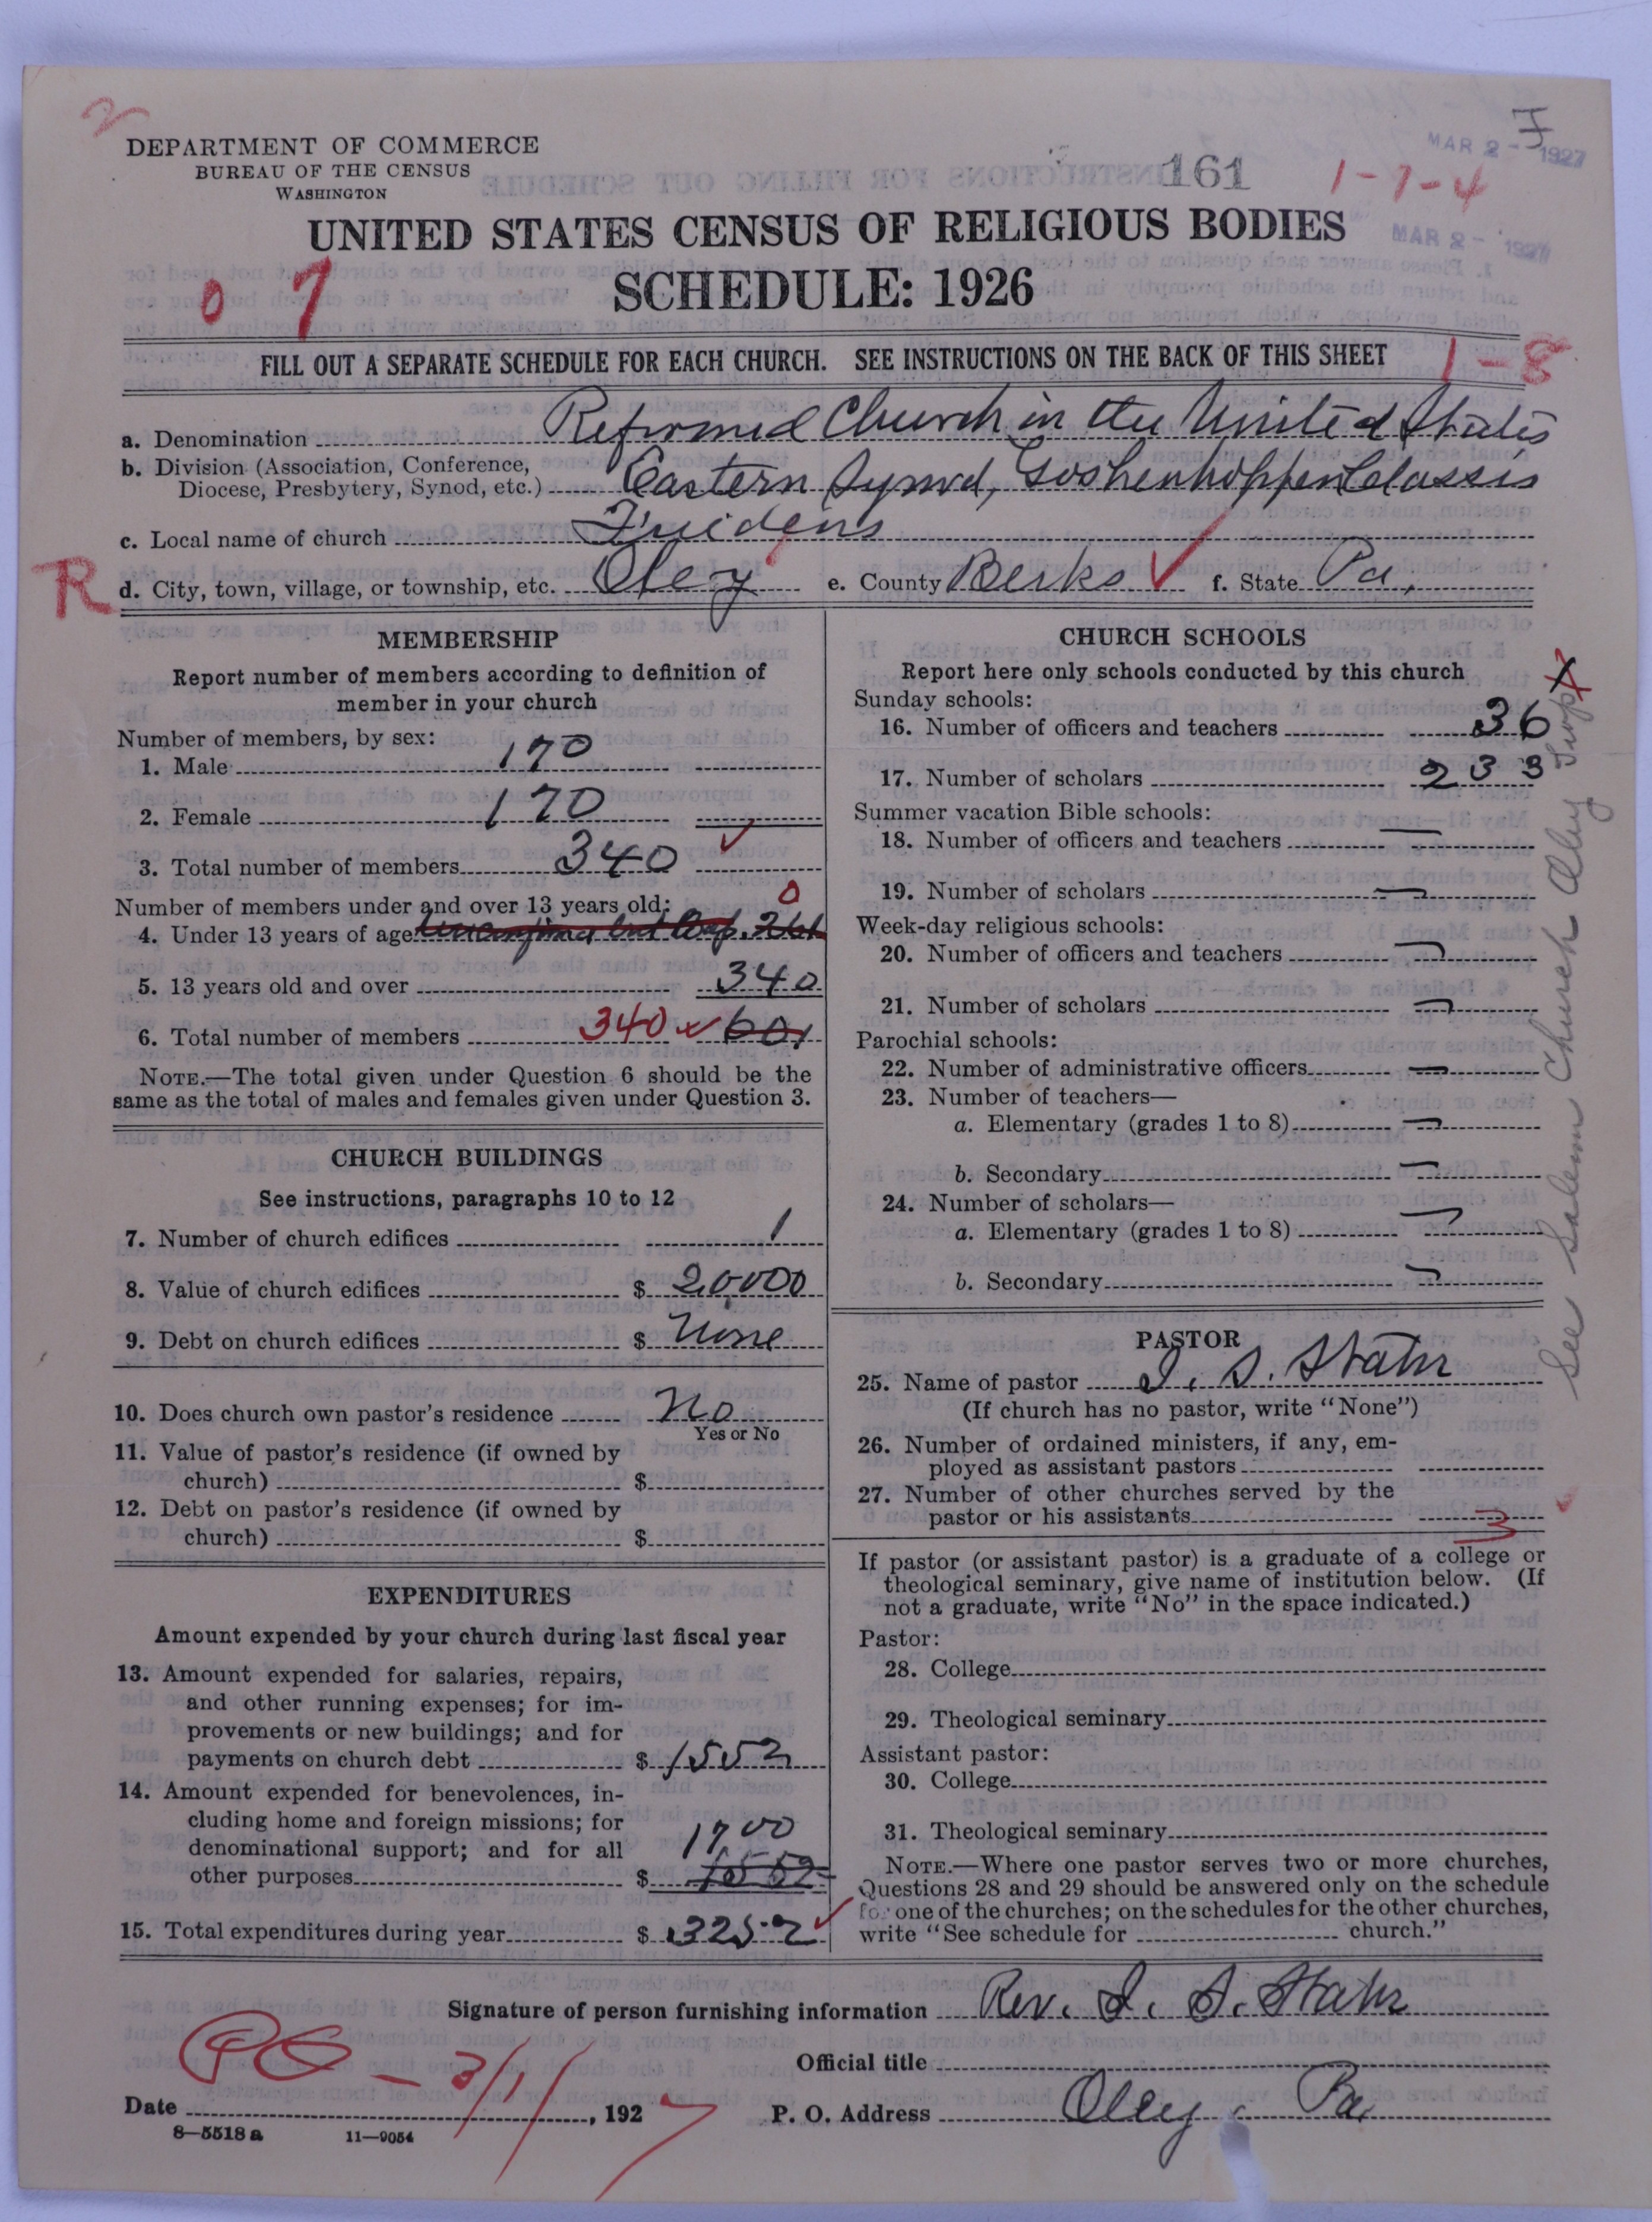 2
DEPARTMENT OF COMMERCE
BUREAU OF THE CENSUS
WASHINGTON
161
1-7-4
MAR 2 - 1927
MAR 2 - 1927
UNITED STATES CENSUS OF RELIGIOUS BODIES
SCHEDULE: 1926
0 7
FILL OUT A SEPARATE SCHEDULE FOR EACH CHURCH. SEE INSTRUCTIONS ON THE BACK OF THIS SHEET
1-8
a. Denomination Reformed Church in the United States
b. Division (Association, Conference,
Diocese, Presbytery, Synod, etc.) Eastern Synod, Goshenhoppen Classis
c. Local name of church Friedens
R
d. City, town, village, or township, etc. Oley e. County Berks ✓ f. State Pa.
MEMBERSHIP
Report number of members according to definition of
member in your church
Number of members, by sex:
1. Male 170
2. Female 170
3. Total number of members 340 ✓
Number of members under and over 13 years old:
0
4. Under 13 years of age
5. 13 years old and over 340
6. Total number of members 340 ✓ 601
NOTE.—The total given under Question 6 should be the
same as the total of males and females given under Question 3.
CHURCH BUILDINGS
See instructions, paragraphs 10 to 12
7. Number of church edifices 1
8. Value of church edifices $ 20,000
9. Debt on church edifices $ None
10. Does church own pastor's residence No
Yes or No
11. Value of pastor's residence (if owned by
church) $
12. Debt on pastor's residence (if owned by
church) $
EXPENDITURES
Amount expended by your church during last fiscal year
13. Amount expended for salaries, repairs,
and other running expenses; for im-
provements or new buildings; and for
payments on church debt $ 1552
14. Amount expended for benevolences, in-
cluding home and foreign missions; for
denominational support; and for all 1700
other purposes $ 1552
15. Total expenditures during year $ 3252 ✓
CHURCH SCHOOLS
Report here only schools conducted by this church
Sunday schools:
16. Number of officers and teachers 36
17. Number of scholars 233
Summer vacation Bible schools:
18. Number of officers and teachers —
19. Number of scholars —
Week-day religious schools:
20. Number of officers and teachers —
21. Number of scholars —
Parochial schools:
22. Number of administrative officers —
23. Number of teachers—
a. Elementary (grades 1 to 8) —
b. Secondary —
24. Number of scholars—
a. Elementary (grades 1 to 8) —
b. Secondary —
See Salem Church Oley Twp
PASTOR
25. Name of pastor I. S. Stahr
(If church has no pastor, write "None")
26. Number of ordained ministers, if any, em-
ployed as assistant pastors
27. Number of other churches served by the
pastor or his assistants 3
If pastor (or assistant pastor) is a graduate of a college or
theological seminary, give name of institution below. (If
not a graduate, write "No" in the space indicated.)
Pastor:
28. College
29. Theological seminary
Assistant pastor:
30. College
31. Theological seminary
NOTE.—Where one pastor serves two or more churches,
Questions 28 and 29 should be answered only on the schedule
for one of the churches; on the schedules for the other churches,
write "See schedule for church."
Signature of person furnishing information Rev. I. S. Stahr
Official title
Date 3/1/, 1927
P. O. Address Oley, Pa
8—5518 a 11—9054